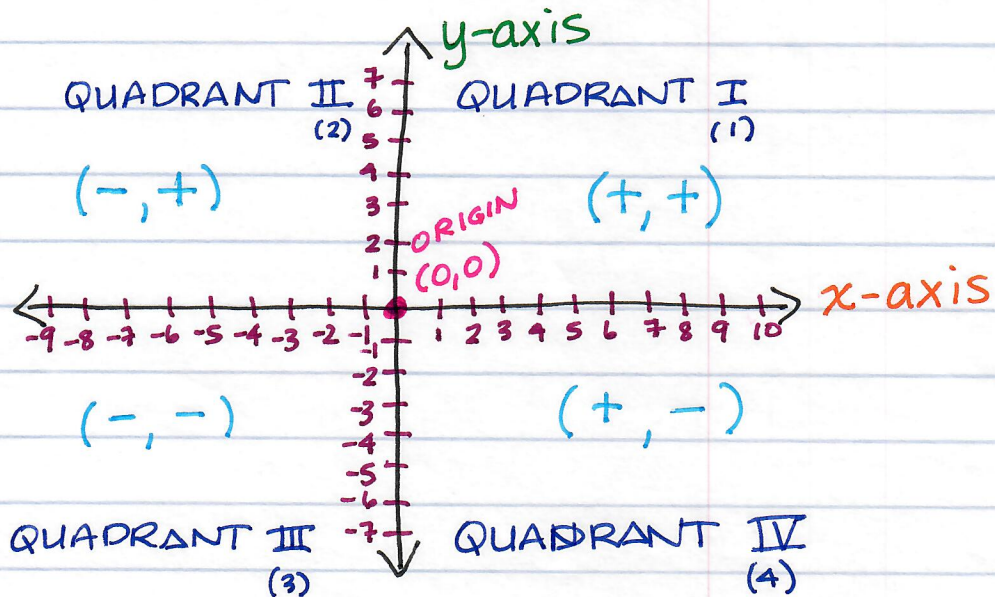 y-axis
QUADRANT II
(2)
QUADRANT I
(1)
7
6
5
4
3
2
1
(-,+)
(+,+)
ORIGIN
(0,0)
x-axis
-9 -8 -7 -6 -5 -4 -3 -2 -1 1 2 3 4 5 6 7 8 9 10
-1
-2
-3
-4
-5
-6
-7
(-,-)
(+,-)
QUADRANT III
(3)
QUADRANT IV
(4)